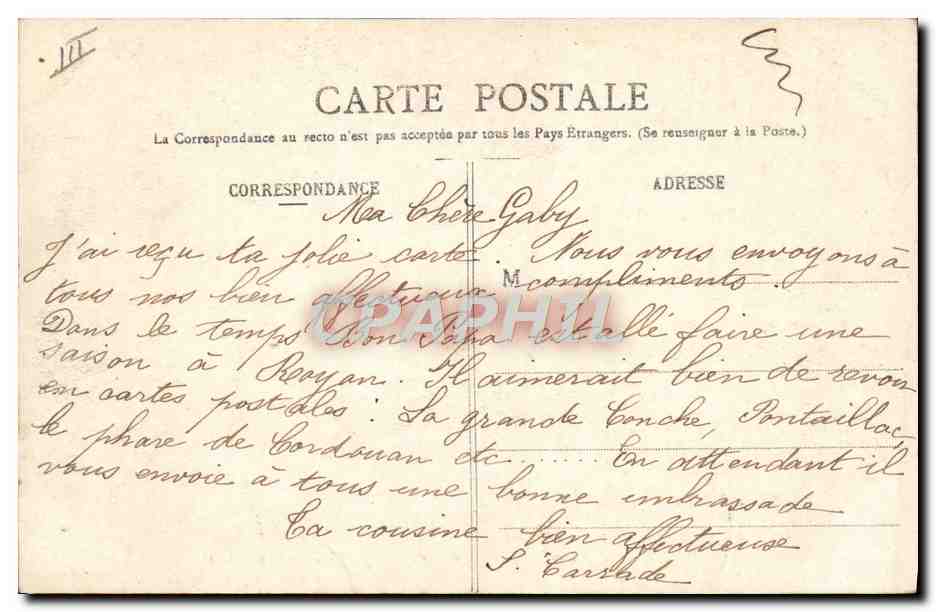 III
CARTE POSTALE
La Correspondance au recto n'est pas acceptée par tous les Pays Étrangers. (Se renseigner à la Poste.)
CORRESPONDANCE
ADRESSE
Ma Chère Gaby
J'ai reçu ta jolie carte. Nous vous envoyons à
tous nos bien affectueux compliments.
M
Dans le temps Bon Papa est allé faire une
saison à Royan. Il aimerait bien de revoir
en cartes postales : La grande Conche, Pontaillac,
le phare de Cordouan etc...... En attendant il
vous envoie à tous une bonne embrassade
Ta cousine bien affectueuse
S. Carrade
CPAPHIL